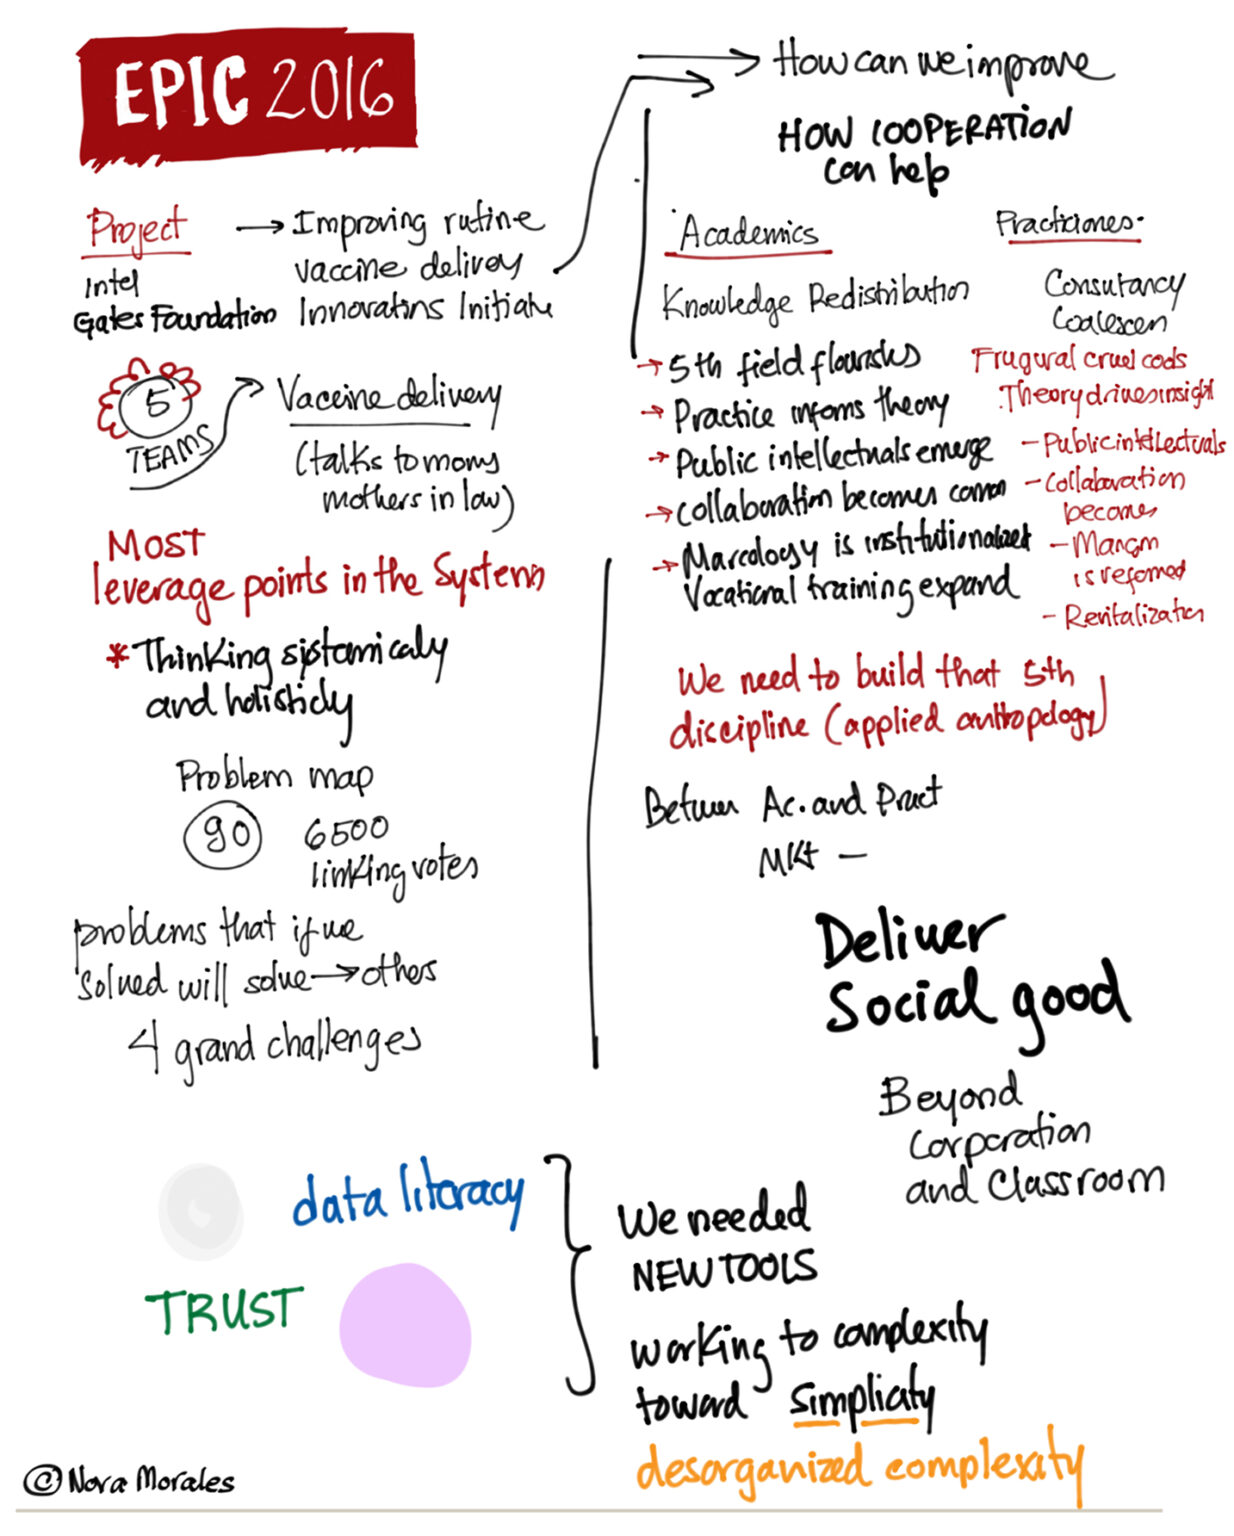 EPIC 2016
Project
Intel
Gates Foundation
→ Improving rutine
vaccine delivey
Innovatins Initiate
5
TEAMS
Vaccine delivery
(talks to moms
mothers in law)
Most
leverage points in the System
* Thinking sistamicaly
and holisticly
Problem map
90
6500
linking votes
problems that if we
solved will solve → others
4 grand challenges
data literacy
TRUST
How can we improve
HOW COOPERATION
can help
Academics
Knowledge Redistribution
→ 5th field flourishes
→ Practice informs theory
→ Public intellectuals emerge
→ Collaboration becomes common
→ Marcology is institutionalized
Vocational training expand
Practiciones
Consutancy
Coalescen
cods
Theory drives insight
- Public intellectuals
- Collaboration
becomes
is reformed
- Revitalization
We need to build that 5th
discipline (applied anthropology)
Between Ac. and Pract
MKt —
Deliver
Social good
Beyond
Corporation
and Classroom
We needed
NEW TOOLS
working to complexity
toward simplicity
desorganized complexity
© Nora Morales